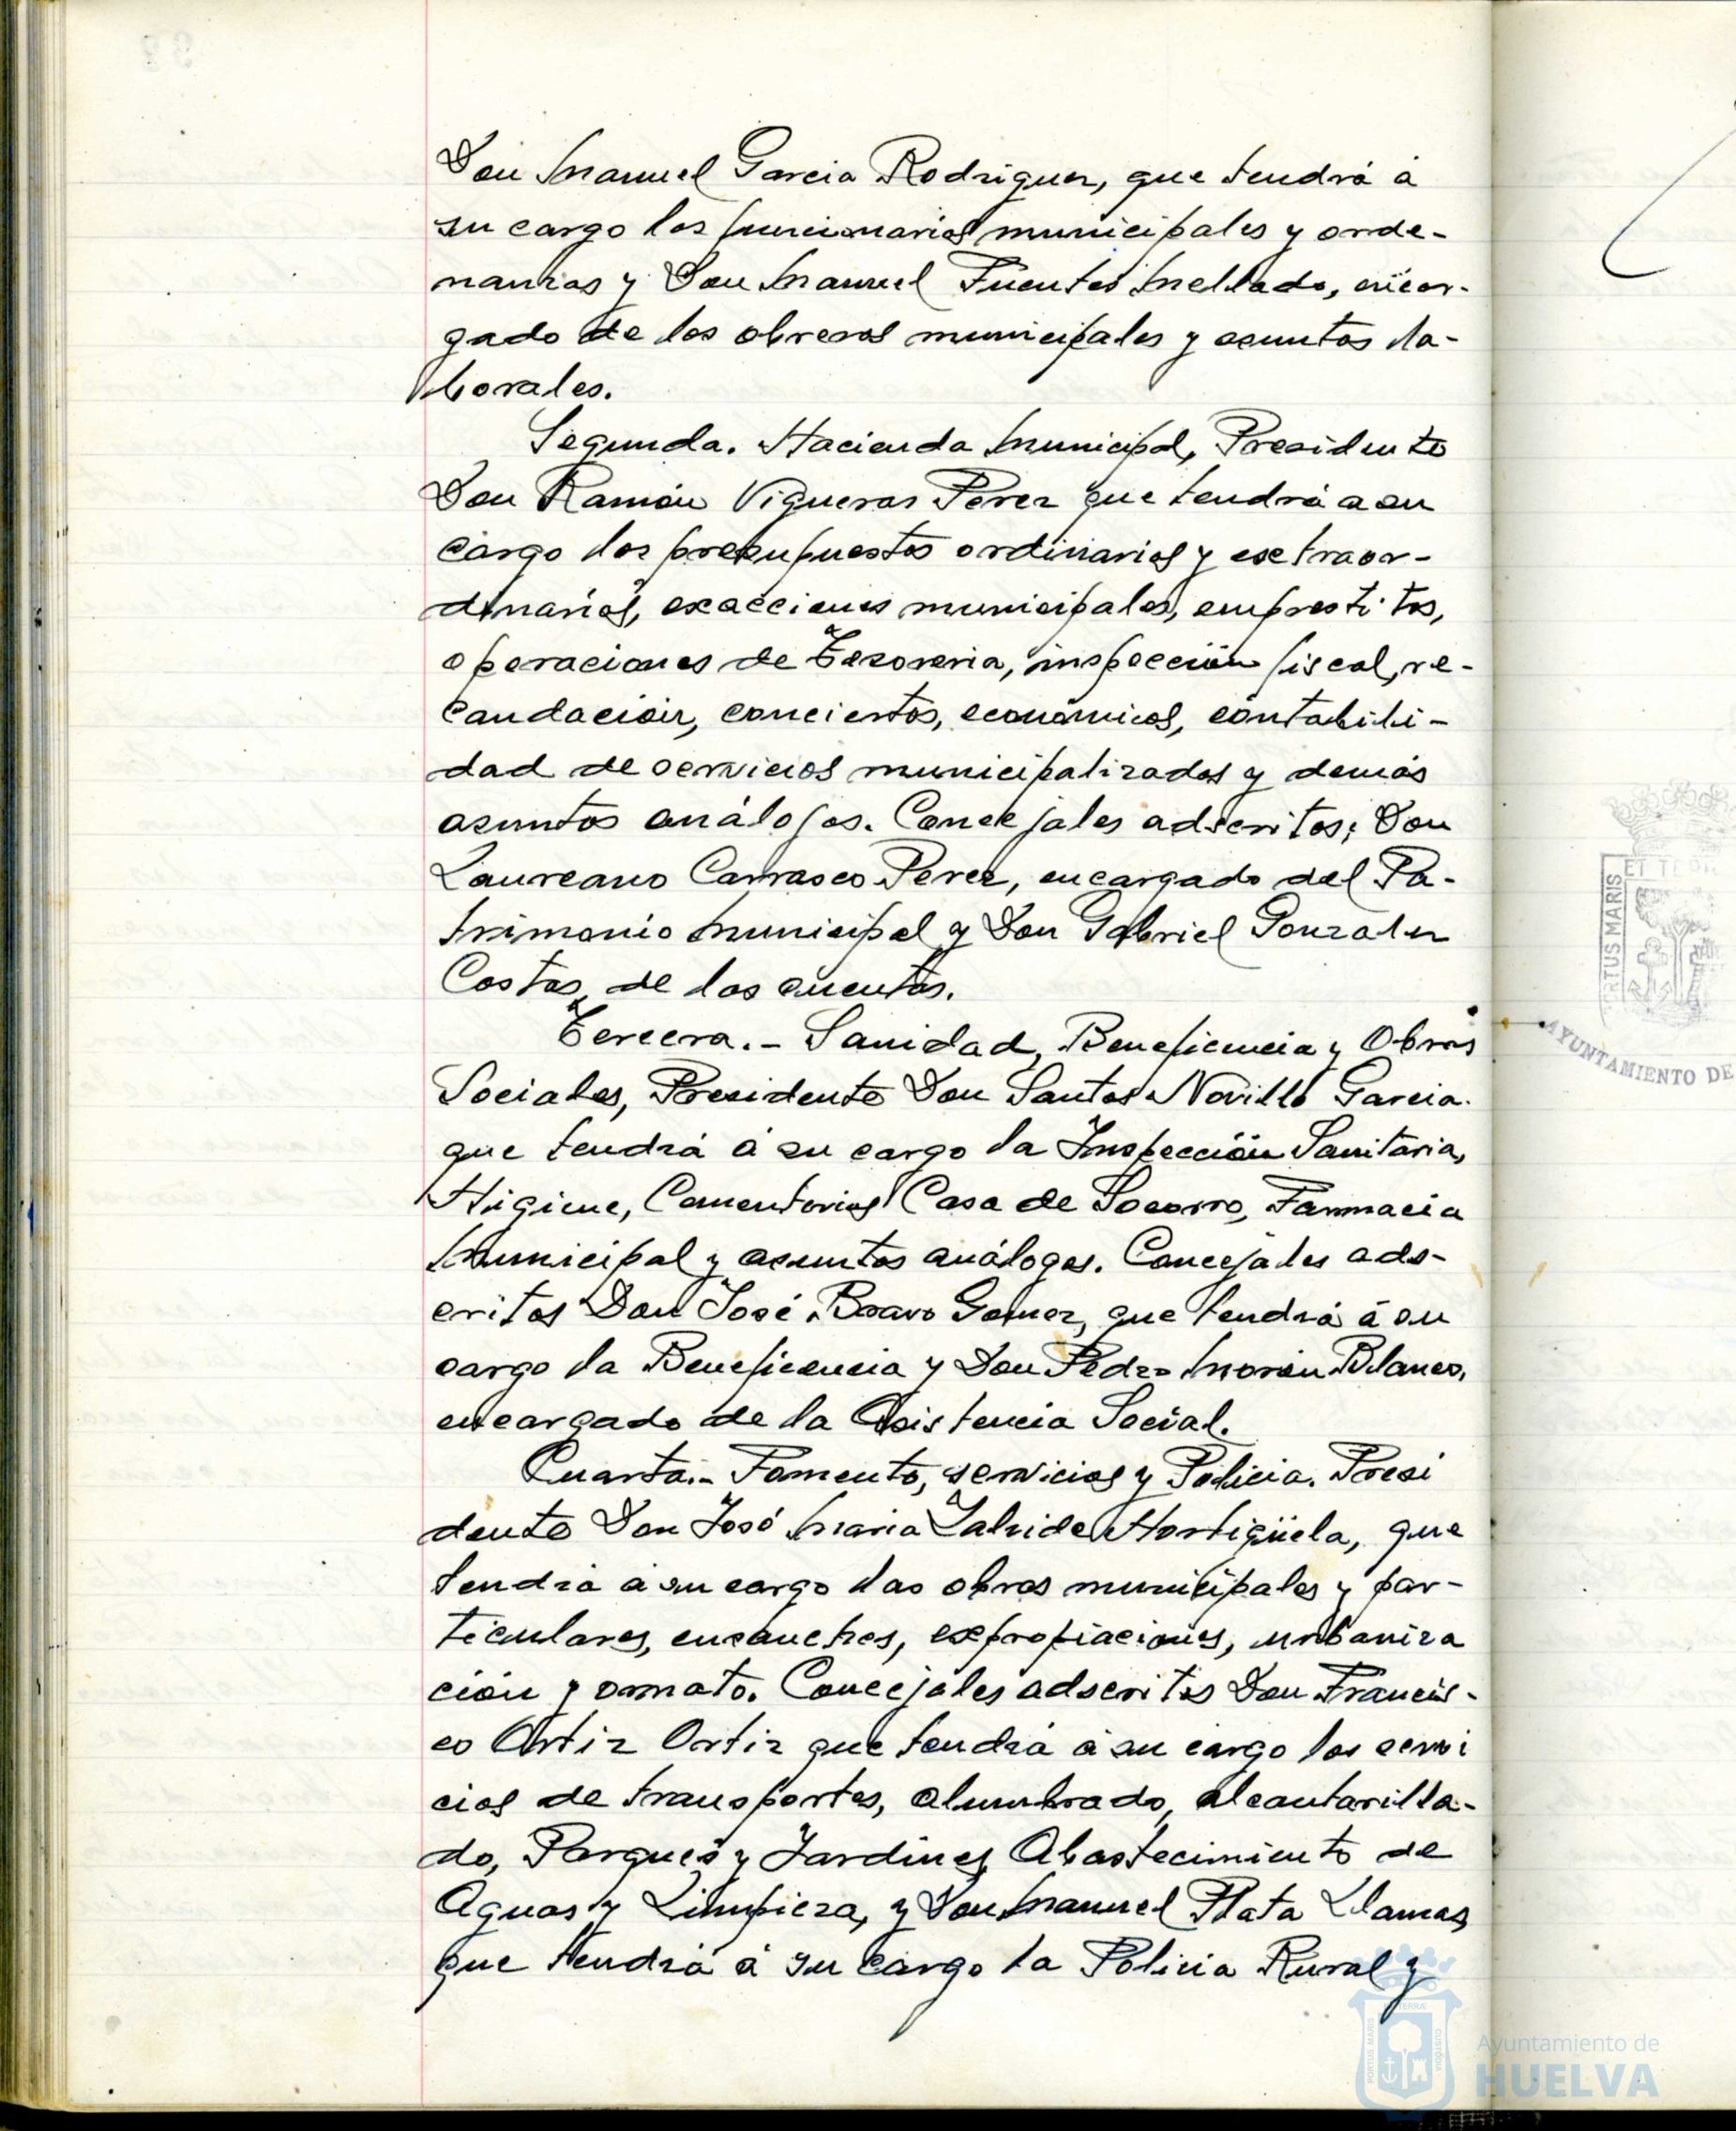 Don Manuel Garcia Rodriguez, que tendrá á
su cargo los funcionarios municipales y orde-
nanzas y Don Manuel Fuentes Mellado, encar-
gado de los obreros municipales y asuntos la-
borales.
Segunda. Hacienda Municipal, Presidente
Don Ramón Vigueras Perez que tendrá a su
cargo los presupuestos ordinarios y extraor-
dinarios, exacciones municipales, emprestitos,
operaciones de Tesoreria, inspección fiscal, re-
caudación, conciertos, económicos, contabili-
dad de servicios municipalizados y demás
asuntos análogos. Concejales adscritos; Don
Laureano Carrasco Perez, encargado del Pa-
trimonio Municipal y Don Gabriel Gonzalez
Costas, de las cuentas.
Tercera.- Sanidad, Beneficencia y Obras
Sociales, Presidente Don Santos Novillo Garcia.
que tendrá á su cargo la Inspección Sanitaria,
Higiene, Cementerios Casa de Socorro, Farmacia
Municipal y asuntos análogos. Concejales ads-
critos Don José Bravo Gomez, que tendrá á su
cargo la Beneficencia y Don Pedro Morón Blanco,
encargado de la Asistencia Social.
Cuarta.- Fomento, servicios y Policia. Presi
dente Don José Maria Zalvide Hortigüela, que
tendrá a su cargo las obras municipales y par-
ticulares, ensanches, expropiaciones, urbaniza
ción y ornato. Concejales adscritos Don Francis-
co Ortiz Ortiz que tendrá á su cargo los servi
cios de transportes, alumbrado, alcantarilla-
do, Parques y Jardines, Abastecimiento de
Aguas y Limpieza, y Don Manuel Plata Llamas
que tendrá á su cargo la Policia Rural y
AYUNTAMIENTO DE
Ayuntamiento de
HUELVA